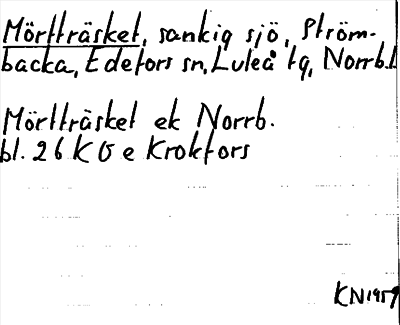 Mörtträsket, sankig sjö, Ström-
backa, Edefors sn, Luleå tg, Norrb.l.
Mörtträsket ek Norrb.
bl. 26 K 0 e Krokfors
KN 1959